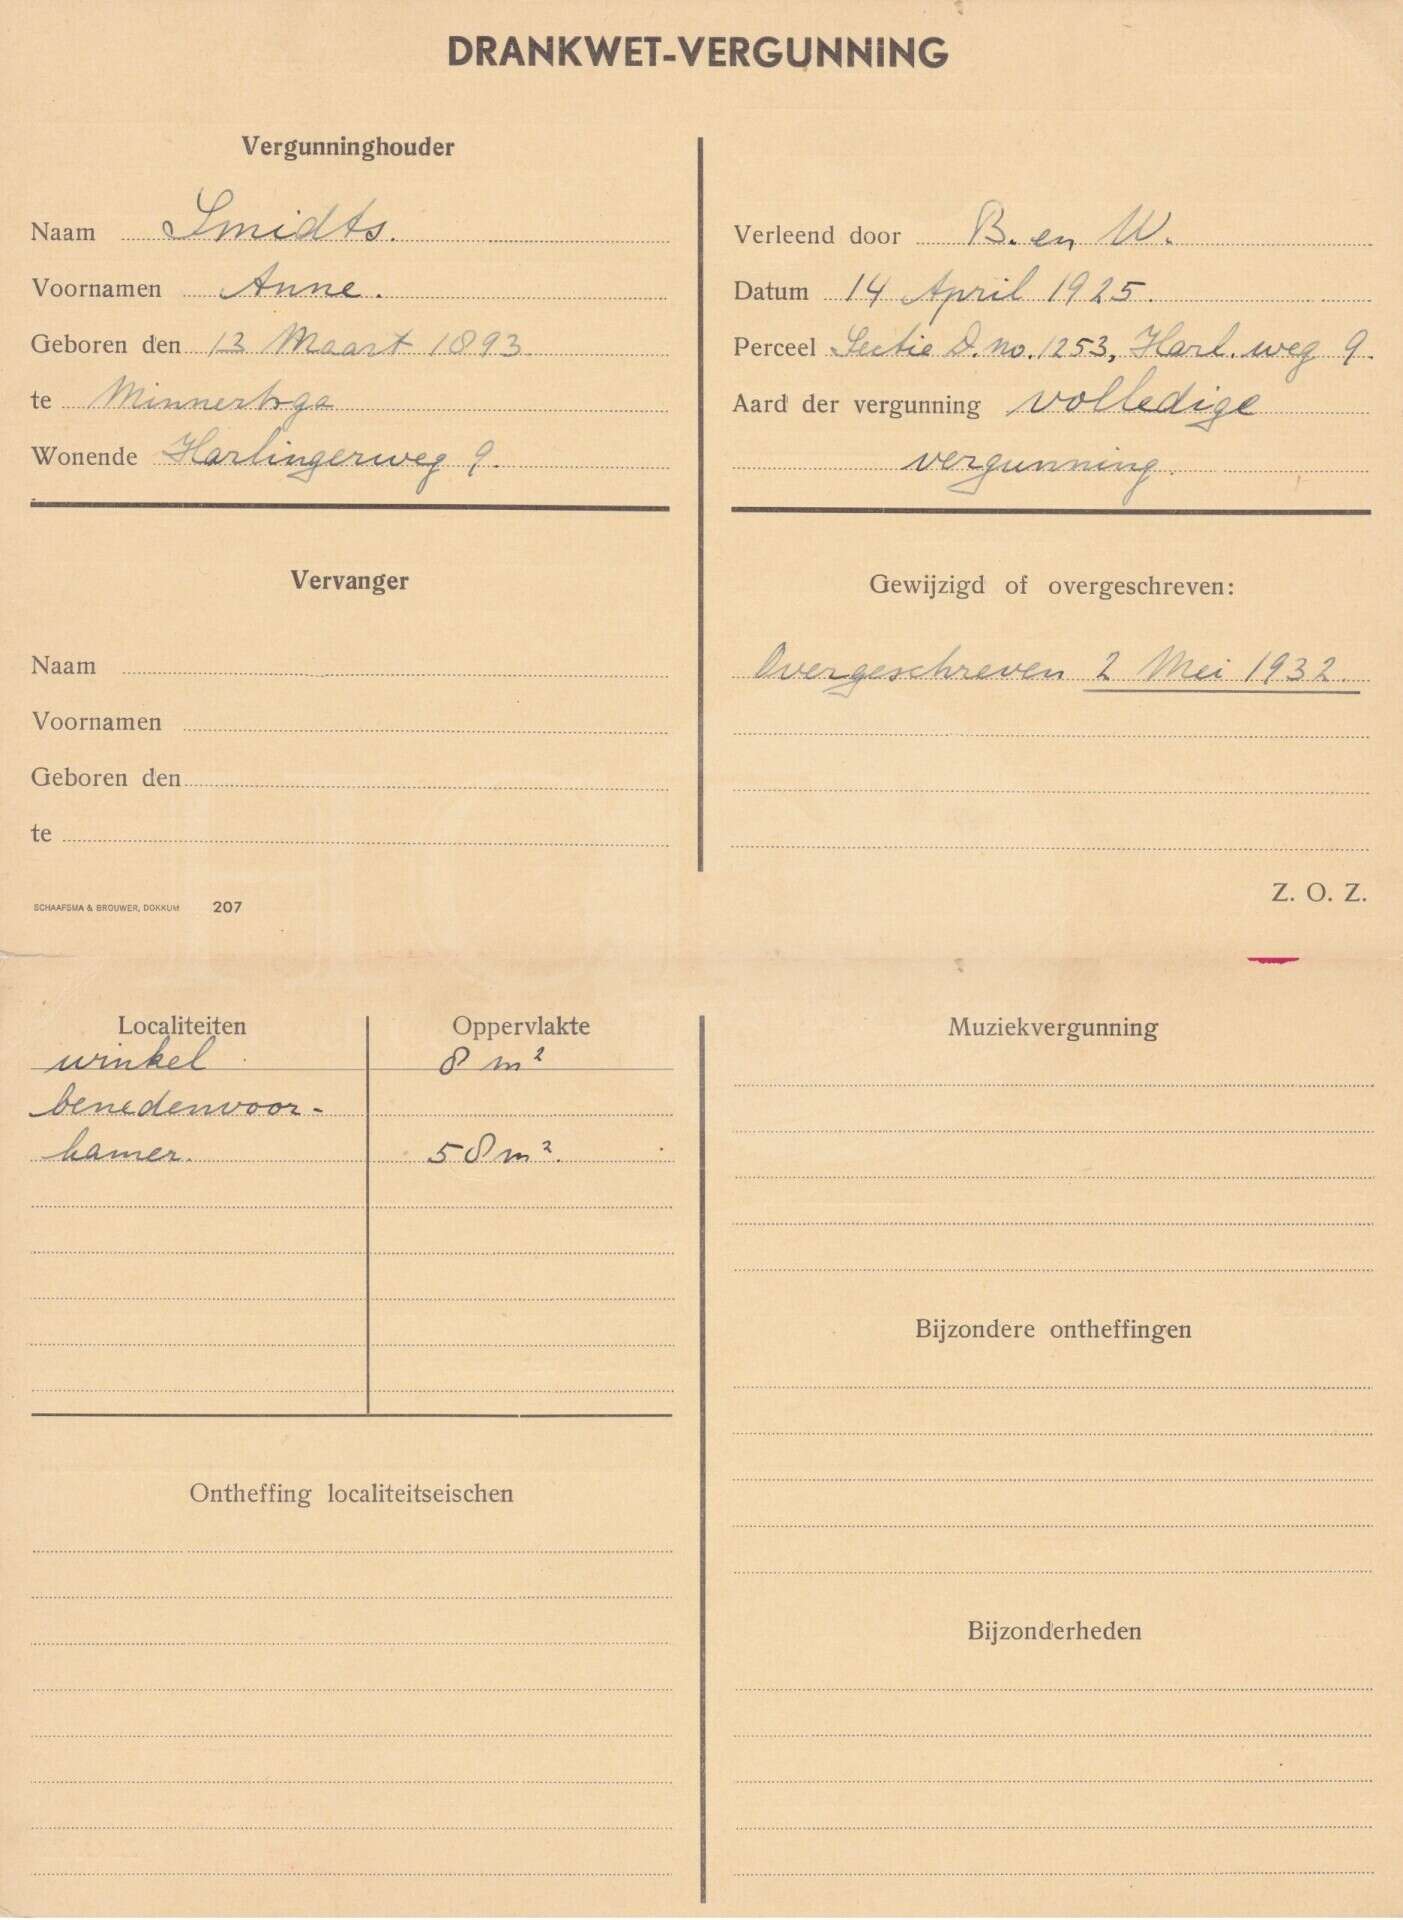 DRANKWET-VERGUNNING
Vergunninghouder
Naam Smidts.
Voornamen Anne.
Geboren den 13 Maart 1893
te Minnertsga
Wonende Harlingerweg 9.
Verleend door B. en W.
Datum 14 April 1925.
Perceel Sectie D. no. 1253, Harl. weg 9.
Aard der vergunning volledige
vergunning.
Vervanger
Naam
Voornamen
Geboren den
te
SCHAAFSMA & BROUWER, DOKKUM 207
Gewijzigd of overgeschreven:
Overgeschreven 2 Mei 1932.
Z. O. Z.
Localiteiten Oppervlakte
winkel 8 m²
benedenvoor-
kamer. 58 m².
Ontheffing localiteitseischen
Muziekvergunning
Bijzondere ontheffingen
Bijzonderheden